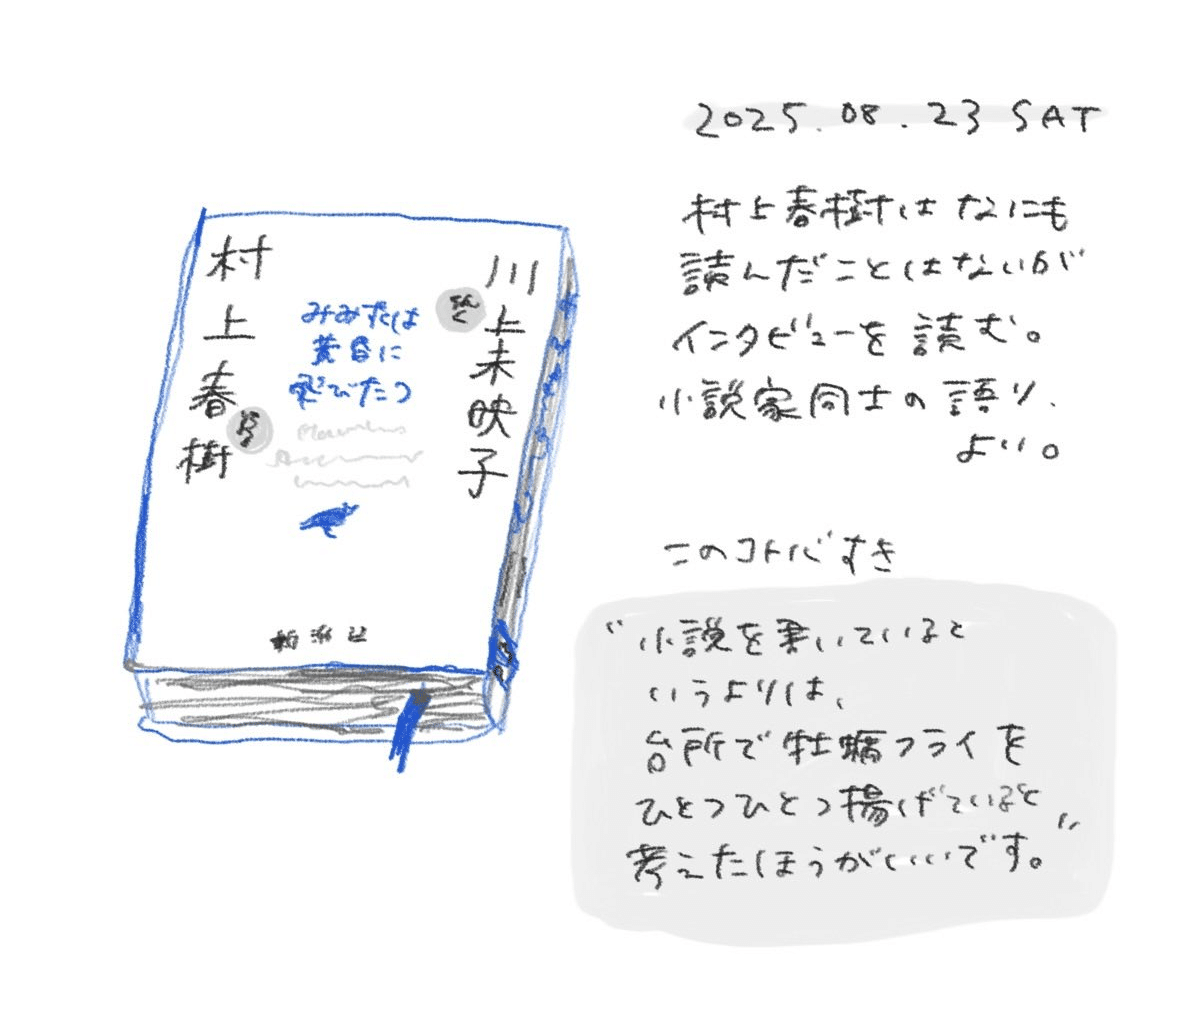 2025.08.23 SAT
村上春樹はなにも
読んだことはないが
インタビューを読む。
小説家同士の語り、
よい。
このコトバすき
“小説を書いていると
いうよりは、
台所で牡蠣フライを
ひとつひとつ揚げていると
考えたほうがいいです。”
川上未映子
きく
みみずくは
黄昏に
飛びたつ
村上春樹
語る
新潮社